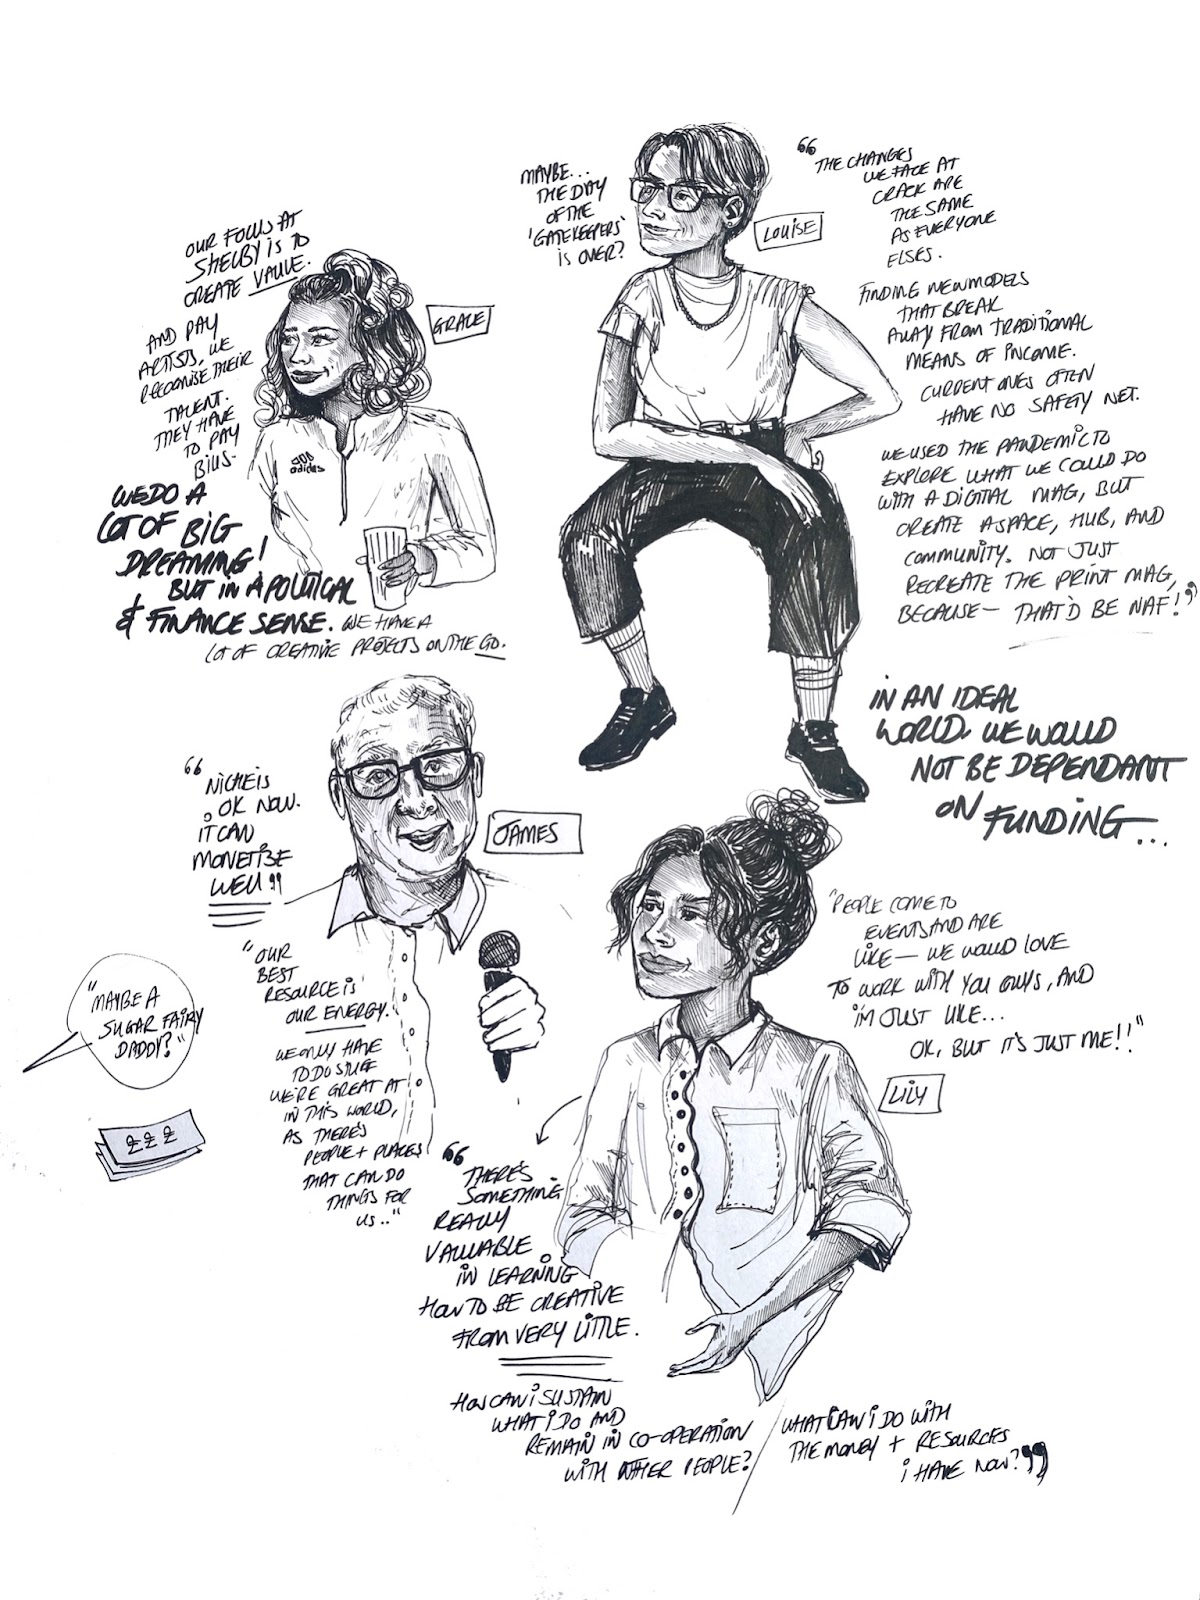 OUR FOCUS AT
SHELBY IS TO
CREATE VALUE.
AND PAY
ARTISTS, WE
RECOGNISE THEIR
TALENT.
THEY HAVE
TO PAY
BILLS.
WE DO A
LOT OF BIG
DREAMING!
BUT IN A POLITICAL
& FINANCE SENSE. WE HAVE A
LOT OF CREATIVE PROJECTS ON THE GO.
GRACE
adidas
MAYBE...
THE DAY
OF THE
'GATEKEEPERS'
IS OVER?
LOUISE
“THE CHANGES
WE FACE AT
CRACK ARE
THE SAME
AS EVERYONE
ELSES.
FINDING NEW MODELS
THAT BREAK
AWAY FROM TRADITIONAL
MEANS OF INCOME.
CURRENT ONES OFTEN
HAVE NO SAFETY NET.
WE USED THE PANDEMIC TO
EXPLORE WHAT WE COULD DO
WITH A DIGITAL MAG, BUT
CREATE A SPACE, HUB, AND
COMMUNITY. NOT JUST
RECREATE THE PRINT MAG,
BECAUSE— THAT'D BE NAF!”
IN AN IDEAL
WORLD. WE WOULD
NOT BE DEPENDANT
ON FUNDING...
“NICHE IS
OK NOW.
IT CAN
MONETISE
WELL”
JAMES
"OUR
BEST
RESOURCE IS
OUR ENERGY.
WE ONLY HAVE
TO DO STUFF
WE'RE GREAT AT
IN THIS WORLD,
AS THERE'S
PEOPLE + PLACES
THAT CAN DO
THINGS FOR
US.."
"MAYBE A
SUGAR FAIRY
DADDY?"
£ £ £
"PEOPLE COME TO
EVENTS AND ARE
LIKE— WE WOULD LOVE
TO WORK WITH YOU GUYS, AND
I'M JUST LIKE...
OK, BUT IT'S JUST ME!!"
LILY
“THERE'S
SOMETHING
REALLY
VALUABLE
IN LEARNING
HOW TO BE CREATIVE
FROM VERY LITTLE.
HOW CAN I SUSTAIN
WHAT I DO AND
REMAIN IN CO-OPERATION
WITH OTHER PEOPLE?
WHAT CAN I DO WITH
THE MONEY + RESOURCES
I HAVE NOW?”